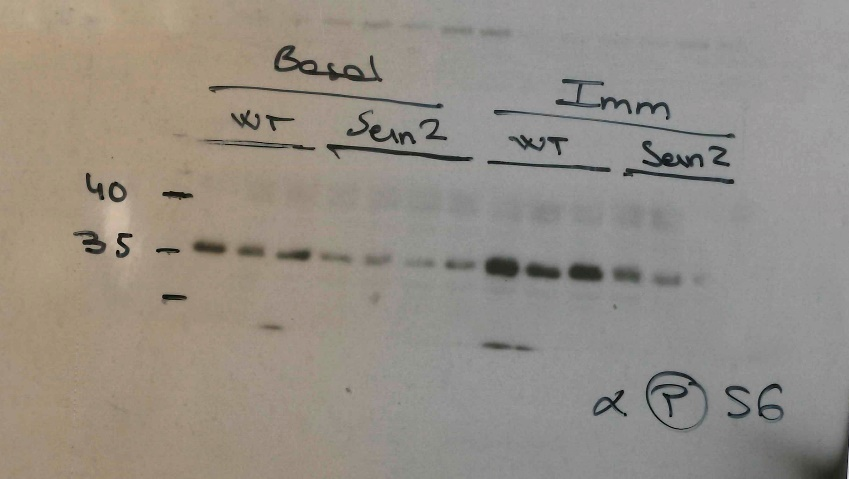 Basal
Imm
WT
Sesn2
WT
Sesn2
40
35
α P S6